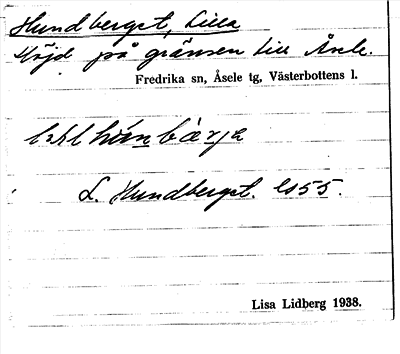 Hundberget, Lilla
Höjd på gränsen till Åsele.
Fredrika sn, Åsele tg, Västerbottens l.
L. Hundberget. Gs 55.
Lisa Lidberg 1938.